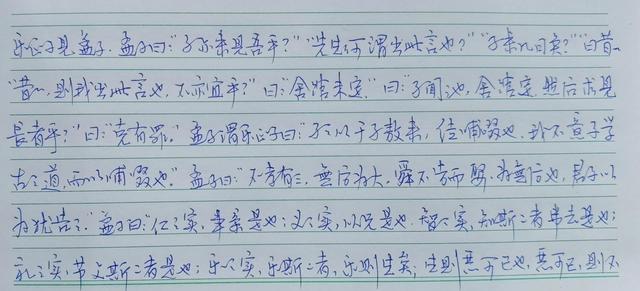 乐正子见孟子。孟子曰:“子亦来见吾乎?”“先生何谓出此言也?”“子来几日矣?”“曰昔一
“昔一,则我出此言也,不亦宜乎?”曰:“舍馆未定。”曰:“子闻之也,舍馆定,然后求见
长者乎?”曰:“克有罪。”孟子谓乐正子曰:“子以于子敖来,徒哺啜也,我不意子学
古之道,而以哺啜也。”孟子曰:“不孝有三,無后为大。舜不告而娶,为無后也,君子以
为犹告之。”孟子曰:“仁之实,事亲是也;义之实,从兄是也。智之实,知斯二者弗去是也;
礼之实,节文斯二者是也;乐之实,乐斯二者,乐则生矣;生则恶可已也,恶可已,则不